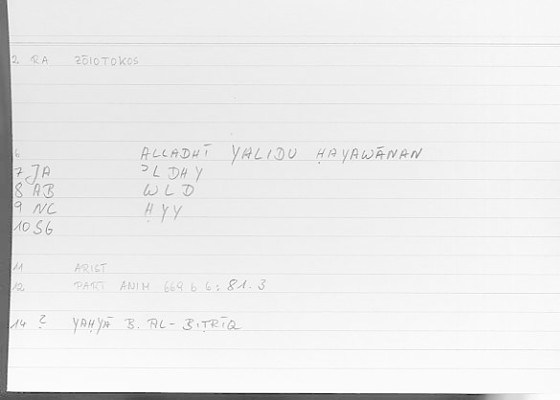 2 RA ZŌIOTOKOS
6 ALLADHĪ YALIDU ḤAYAWĀNAN
7 JA ʾLDHY
8 AB WLD
9 NC ḤYY
10 SG
11 ARIST
12 PART ANIM 669 b 6: 81.3
14 ? YAḤYĀ B. AL-BIṬRĪQ